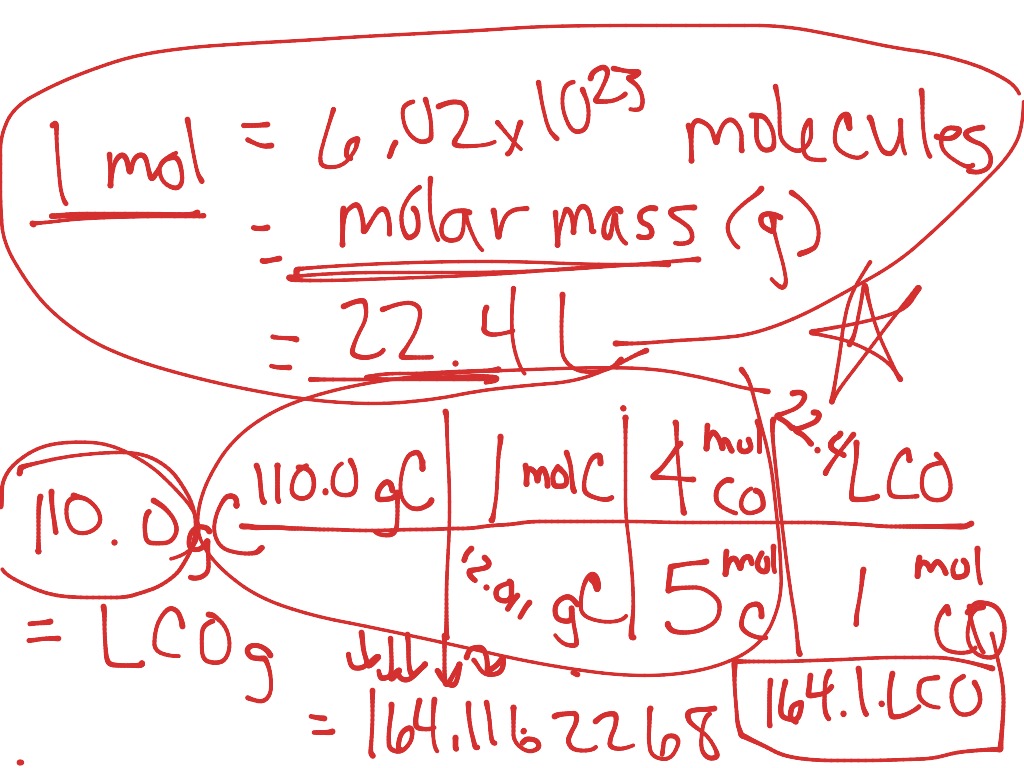 1 mol = 6.02x10^23 molecules
= molar mass (g)
= 22.4 L
110.0 g C
110.0 gC 1 mol C 4 mol CO 22.4 L CO
12.011 gC 5 mol C 1 mol CO
= L CO g
= 164.1162268
164.1 L CO